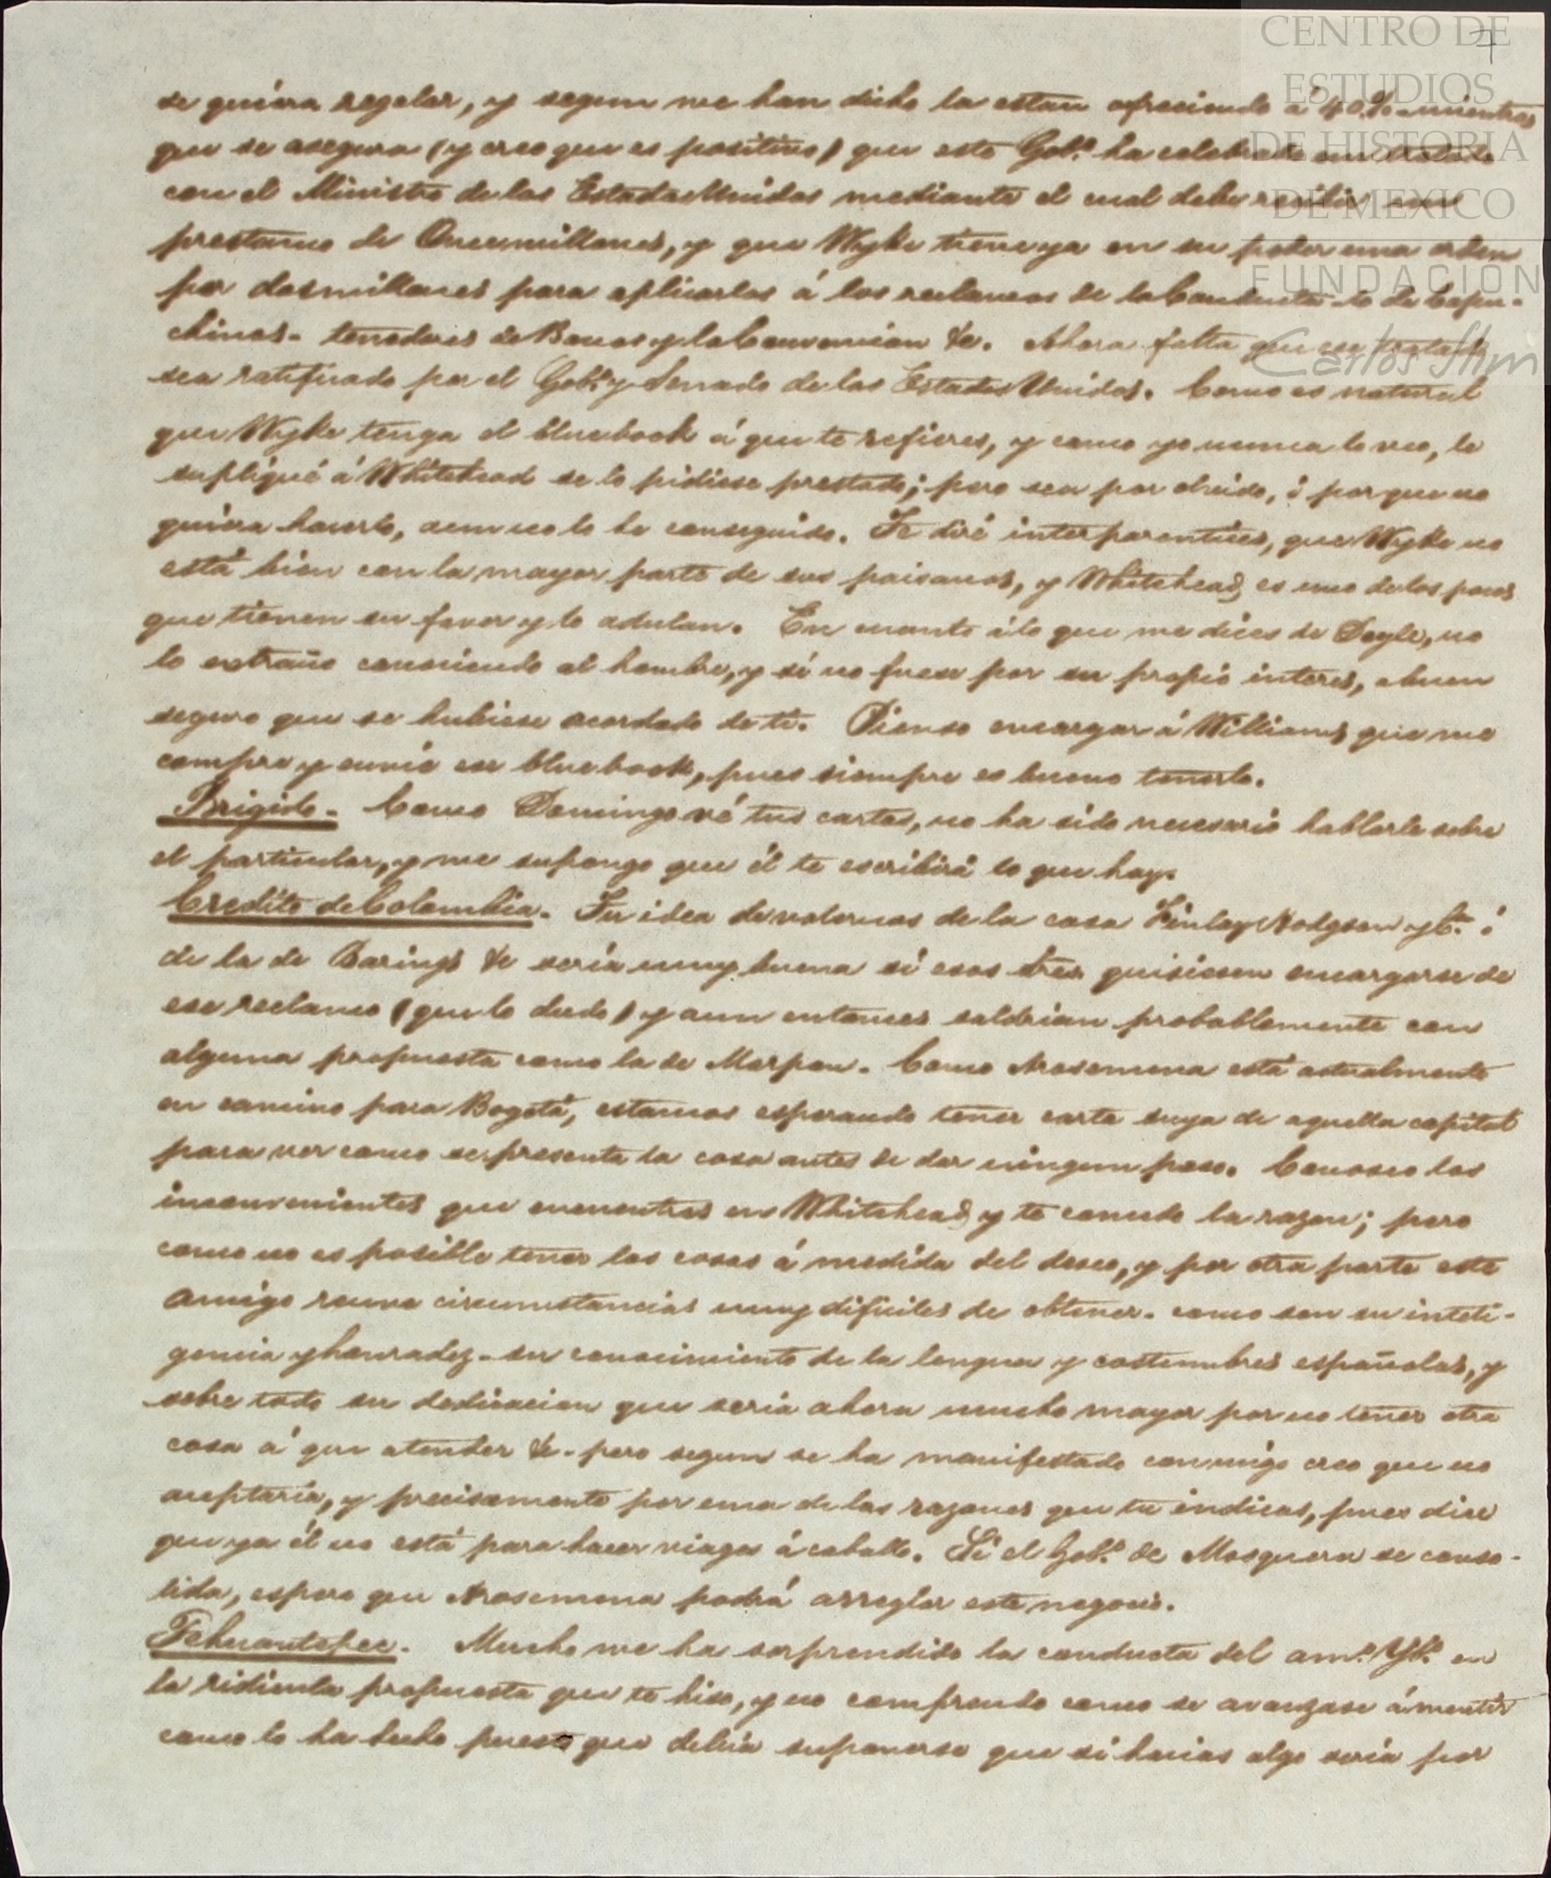 CENTRO DE
ESTUDIOS
DE HISTORIA
DE MEXICO
FUNDACIÓN
Carlos Slim
7
se quiera regalar, y segun me han dicho la estan ofreciendo á 40.% mientras
que se asegura (y creo que es positivo) que este Gob.º ha celebrado un tratado
con el Ministro de los Estados Unidos mediante el cual debe recibir un
prestamo de Once millones, y que Wyke tiene ya en su poder una orden
por dos millones para aplicarlos á los reclamos de la Conducta - lo de Capu-
chinas - tenedores de Bonos y la Convencion &c. Ahora falta que ese tratado
sea ratificado por el Gob.º y Senado de los Estados Unidos. Como es natural
que Wyke tenga el blue book á que te refieres, y como yo nunca lo veo, le
supliqué á Whitehead se lo pidiese prestado; pero sea por olvido, ó porque no
quiera hacerlo, aun no lo he conseguido. Te diré inter parentises, que Wyke no
está bien con la mayor parte de sus paisanos, y Whitehead es uno de los pocos
que tienen su favor y lo adulan. En cuanto á lo que me dices de Doyle, no
lo extraño conociendo al hombre, y si no fuese por su propio interes, abuen
seguro que se hubiese acordado de ti. Pienso encargar á Williams que me
compre y envie ese blue book, pues siempre es bueno tenerlo.
Brigido - Como Domingo vé tus cartas, no ha sido necesario hablarle sobre
el particular, y me supongo que él te escribirá lo que hay.
Credito de Colombia - Tu idea de valernos de la casa Finlay Hodgson y C.ª ó
de la de Barings &c seria muy buena si esos Sres quisiesen encargarse de
ese reclamo (que lo dudo) y aun entonces saldrian probablemente con
alguna propuesta como la de Marpon. Como Arosemena está actualmente
en camino para Bogotá, estamos esperando tener carta suya de aquella capital
para ver como se presenta la cosa antes de dar ningun paso. Conosco los
inconvenientes que encuentras en Whitehead y te concedo la razon; pero
como no es posible tener las cosas á medida del deseo, y por otra parte este
amigo reune circunstancias muy dificiles de obtener - como son su inteli-
gencia y honradez - su conocimiento de la lengua y costumbres españolas, y
sobre todo su dedicacion que seria ahora mucho mayor por no tener otra
cosa á que atender &c - pero segun se ha manifestado conmigo creo que no
aceptaría, y precisamente por una de las razones que tu indicas, pues dice
que ya él no está para hacer viages á caballo. Si el Gob.º de Mosquera se conso-
lida, espero que Arosemena podrá arreglar este negocio.
Tehuantepec - Mucho me ha sorprendido la conducta del am.º Yb.º en
la ridicula propuesta que te hiso, y no comprendo como se avanzase á mentir
como lo ha hecho puesto que debia suponerse que si hacias algo seria por